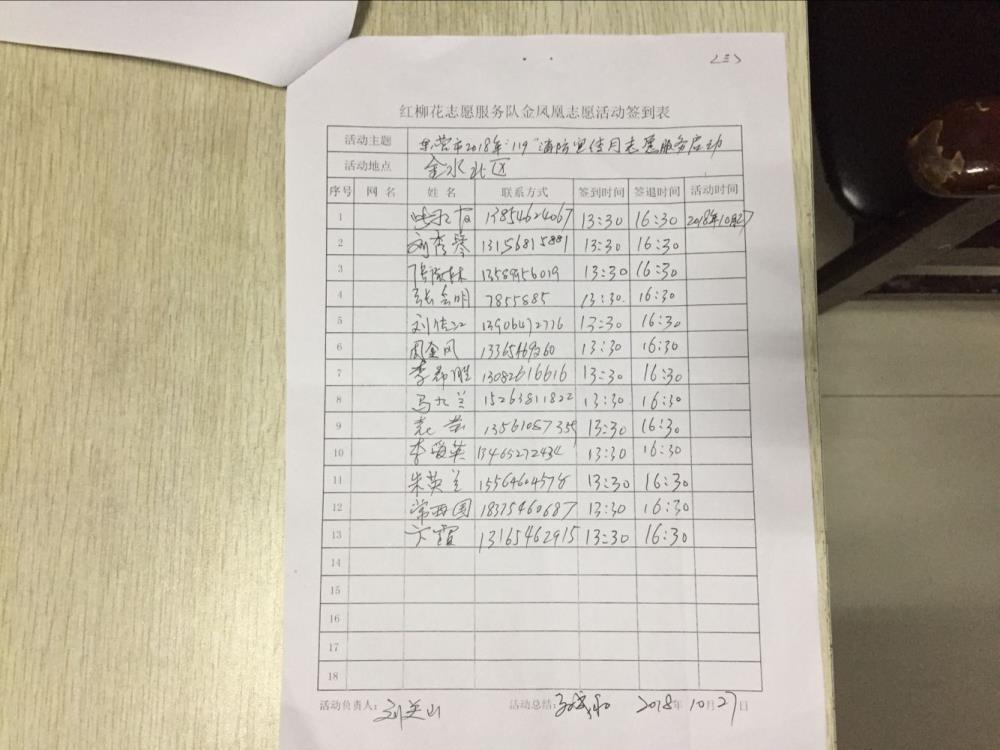 <三>
红柳花志愿服务队金凤凰志愿活动签到表
活动主题 东营市2018年"119"消防宣传月志愿服务启动
活动地点 金水北区
序号 网名 姓名 联系方式 签到时间 签退时间 活动时间
1 13854624067 13:30 16:30 2018年10月27
2 刘秀琴 13156815881 13:30 16:30
3 13589956019 13:30 16:30
4 张金明 7855885 13:30 16:30
5 刘佳江 13906472776 13:30 16:30
6 周金凤 13365469260 13:30 16:30
7 李郡胜 13082616616 13:30 16:30
8 马九兰 15263811822 13:30 16:30
9 13561087355 13:30 16:30
10 李爱英 13465272434 13:30 16:30
11 朱英兰 15564604578 13:30 16:30
12 常西国 18375460687 13:30 16:30
13 卞霞 13165462915 13:30 16:30
14
15
16
17
18
活动负责人: 刘英山 活动总结: 2018年10月27日